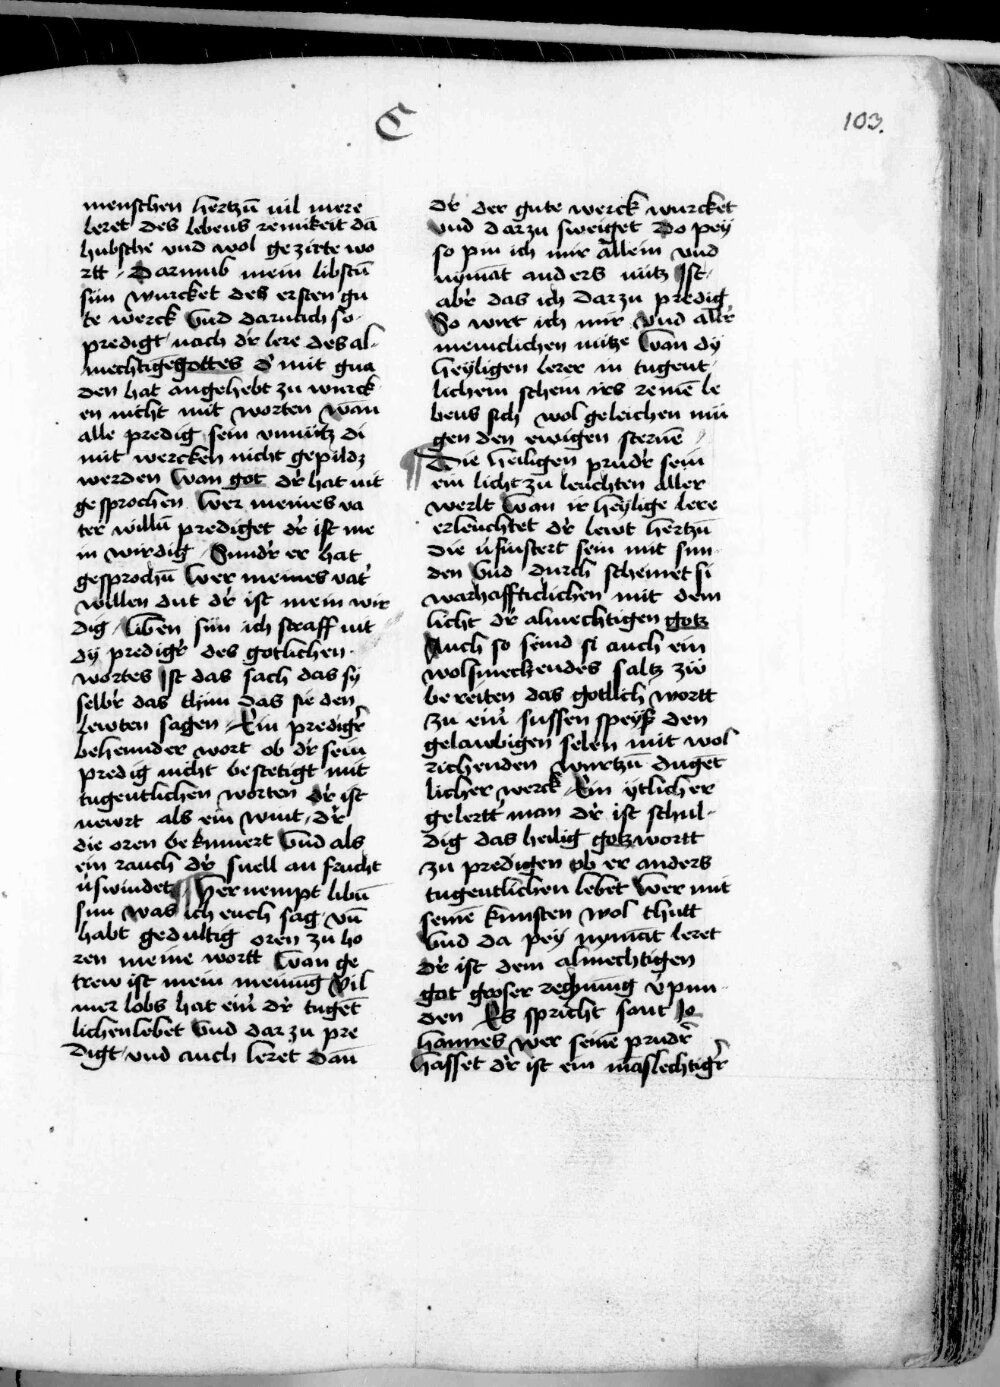 C
103.
menschen hertzū vil mere
leret des lebens reinikeit dā
hubsche vnd wol gezirte wo
rtt Darumb mein libstū
sün wurcket des ersten gu
te werck vnd darnach so
predigt nach dr̄ lere des al
mechtigē gottes d̄ mit gna
den hat angehebt zu wurck
en nicht mit worten wan
alle predig sein vnnütz di
mit wercken nicht gepildz
werden wan got dr̄ hat nit
gesprochen wer meines va
ter willū prediget dr̄ ist me
in wirdig Sundr̄ er hat
gesprochū wer meines vat̄
willen dut dr̄ ist mein wir
dig liben sün ich straff nit
dy predigr̄ des gotlichen
wortes Ist das sach das sy
selbr̄ das thun das sie den
lewten sagen Ein predigr̄
behennder wort ob dr̄ sein
predig nicht bestetigt mit
tugentlichen worten dr̄ ist
newrt als ein wint dr̄
die oren bekumert vnd als
ein rauch dr̄ snell an frucht
v̄swindet Hie vernempt libū
sün was ich euch sag vn̄
habt gedultig oren zu ho
ren meine wortt wan ge
trew ist mein meinūg vil
mer lobs hat ein̄ dr̄ tugēt
lichen lebet vnd dar zu pre
digt vnd auch leret dan
dr̄ der gute werck wurcket
vnd dar zu sweiget Do pey
so pin ich mir allein vnd
nymāt anders nütz Ist
abr̄ das ich dar zu predig
So wirt ich mir vnd allr̄
menclichen nütze wan dy
heyligen lerer in tugent
lichem schein irs reinē le
bens sich wol geleichen mü
gen den ewigen sternē
Die heiligen prudr̄ sein
ein licht zu leuchten aller
werlt wan ir heylige lere
erleuchtet dr̄ lewt hertzū
die v̄finstert sein mit sun
den vnd durch scheinet si
warhaffticlichen mit dem
licht dr̄ almechtigen gotz
Auch so seind si auch ein
wolsmeckendes saltz zü
bereiten das gotlich wortt
zu ein̄ sussen speyß den
gelawbigen selen mit wol
richenden wurtzū dugēt
licher werck Ein ytlicher
gelertt man dr̄ ist schul
dig das heilig gotz wortt
zu predigen ob er anders
tugentlichen lebet wer mit
seinē künsten wol thutt
vnd da pey nymāt leret
dr̄ ist dem almechtigen
got groser rechnūng v̄pun
den Es spricht sant Jo
hannes wer seinē prudr̄
hasset dr̄ ist ein māslechtigr̄